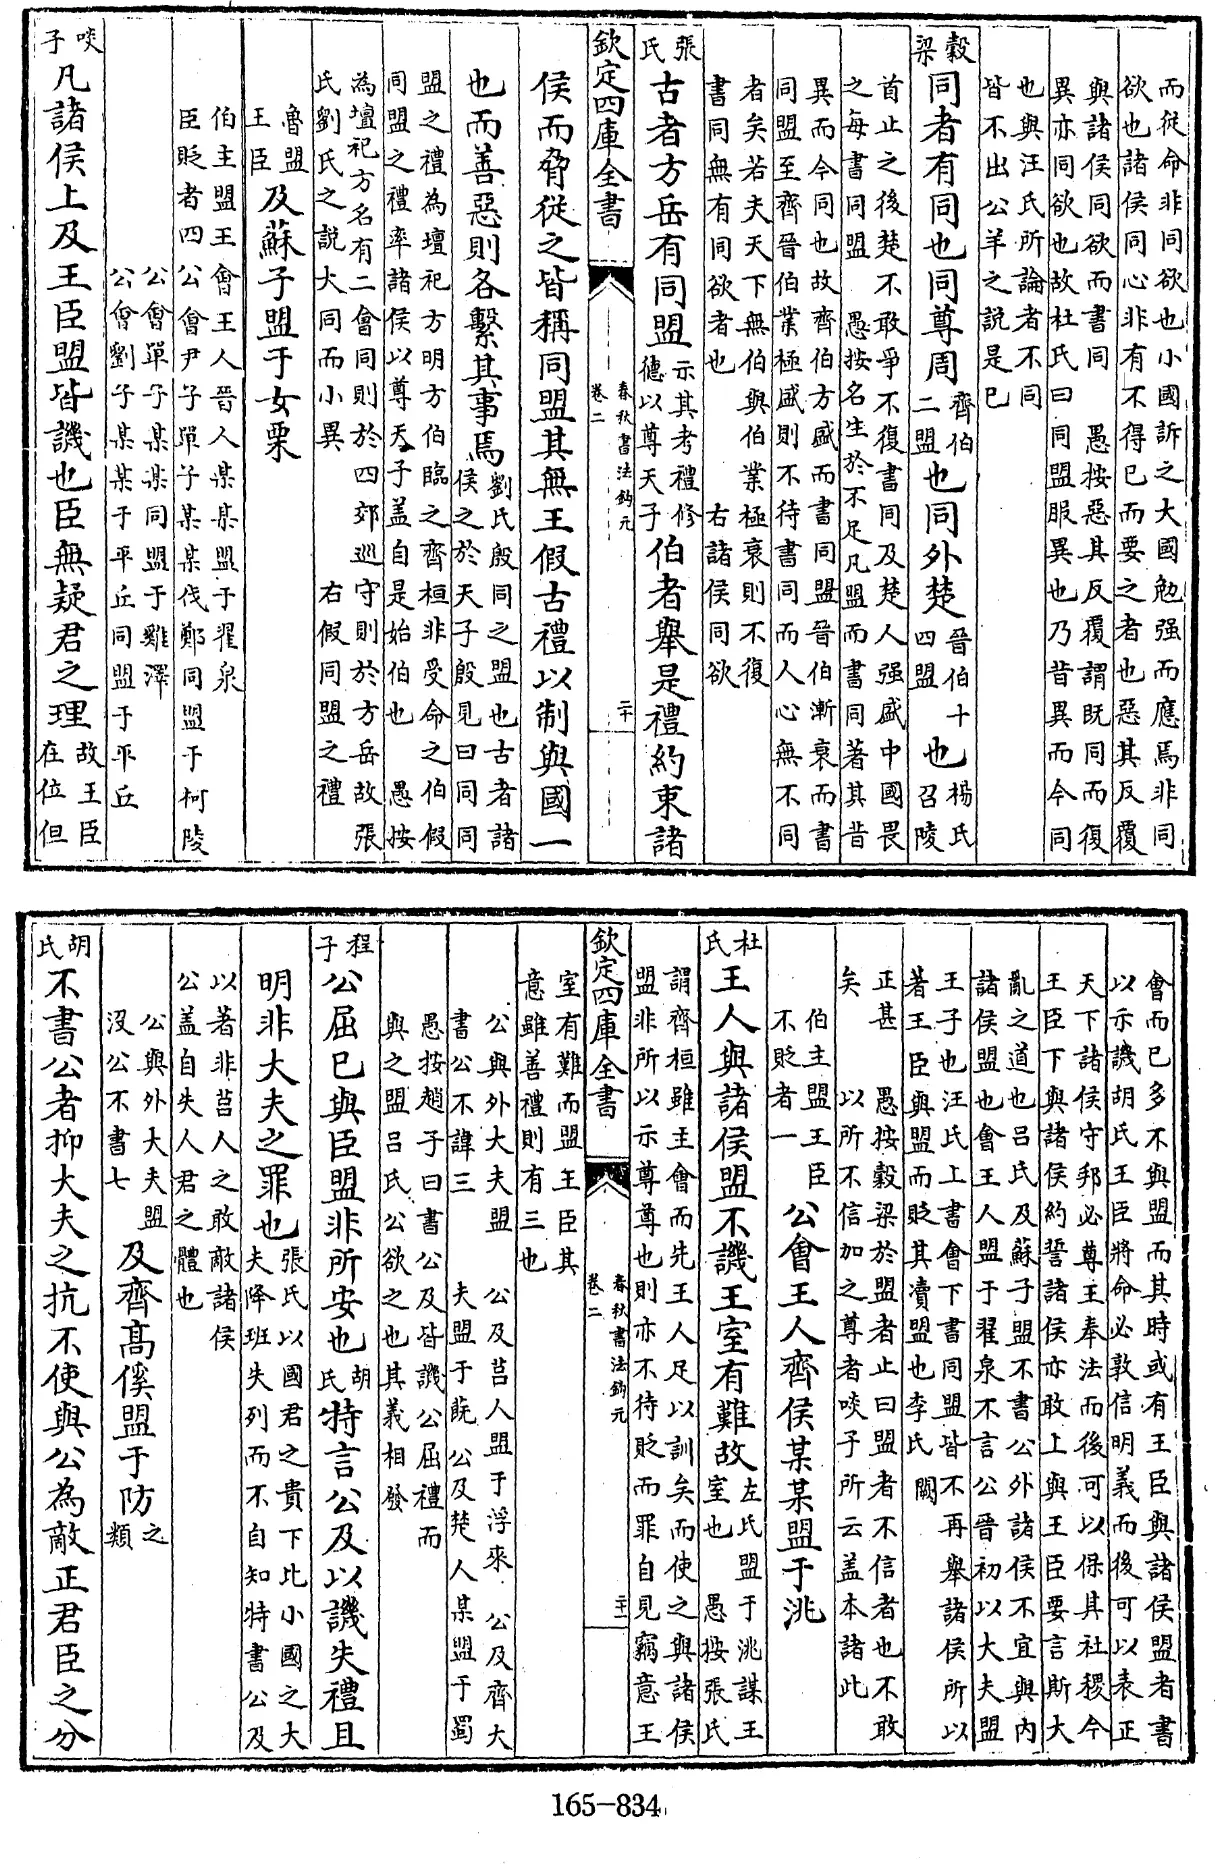 而從命非同欲也小國訴之大國勉强而應焉非同
欲也諸侯同心非有不得已而要之者也惡其反覆
與諸侯同欲而書同　愚按惡其反覆謂既同而復
異亦同欲也故杜氏曰同盟服異也乃昔異而今同
也與汪氏所論者不同
皆不出公羊之説是已
穀梁同者有同也同尊周齊伯二盟也同外楚晉伯十四盟也楊氏召陵
首止之後楚不敢爭不復書同及楚人强盛中國畏
之每書同盟　愚按名生於不足凡盟而書同著其昔
異而今同也故齊伯方盛而書同盟晉伯漸衰而書
同盟至齊晉伯業極盛則不待書同而人心無不同
者矣若夫天下無伯與伯業極衰則不復
書同無有同欲者也　右諸侯同欲
張氏古者方岳有同盟示其考禮修德以尊天子伯者舉是禮約束諸
欽定四庫全書　春秋書法鈎元卷二　二十
侯而脅從之皆稱同盟其無王假古禮以制與國一
也而善惡則各繫其事焉劉氏殷同之盟也古者諸侯之於天子殷見曰同同
盟之禮為壇祀方明方伯臨之齊桓非受命之伯假
同盟之禮率諸侯以尊天子盖自是始伯也　愚按
為壇祀方名有二會同則於四郊巡守則於方岳故張
氏劉氏之説大同而小異　右假同盟之禮
魯盟王臣及蘇子盟于女栗
伯主盟王會王人晉人某某盟于翟泉
臣貶者四公會尹子單子某某伐鄭同盟于柯陵
公會單子某某同盟于雞澤
公會劉子某某于平丘同盟于平丘
啖子凡諸侯上及王臣盟皆譏也臣無疑君之理故王臣在位但
會而已多不與盟而其時或有王臣與諸侯盟者書
以示譏胡氏王臣將命必敦信明義而後可以表正
天下諸侯守邦必尊王奉法而後可以保其社稷今
王臣下與諸侯約誓諸侯亦敢上與王臣要言斯大
亂之道也吕氏及蘇子盟不書公外諸侯不宜與内
諸侯盟也會王人盟于翟泉不言公晉初以大夫盟
王子也汪氏上書會下書同盟皆不再舉諸侯所以
著王臣與盟而貶其瀆盟也李氏　闕
正甚　愚按穀梁於盟者止曰盟者不信者也不敢
矣　以所不信加之尊者啖子所云盖本諸此
伯主盟王臣不貶者一公會王人齊侯某某盟于洮
杜氏王人與諸侯盟不譏王室有難故左氏盟于洮謀王室也　愚按張氏
謂齊桓雖主會而先王人足以訓矣而使之與諸侯
盟非所以示尊尊也則亦不待貶而罪自見竊意王
欽定四庫全書　春秋書法鈎元卷二　二十一
室有難而盟王臣其
意雖善禮則有三也
公與外大夫盟　公及莒人盟于浮來　公及齊大
書公不諱三　夫盟于蔇　公及楚人某盟于蜀
愚按趙子曰書公及皆譏公屈禮而
與之盟吕氏公欲之也其義相發
程子公屈己與臣盟非所安也胡氏特言公及以譏失禮且
明非大夫之罪也張氏以國君之貴下比小國之大夫降班失列而不自知特書公及
以著非莒人之敢敵諸侯
公盖自失人君之體也
公與外大夫盟没公不書七及齊高傒盟于防之類
胡氏不書公者抑大夫之抗不使與公為敵正君臣之分
165-834